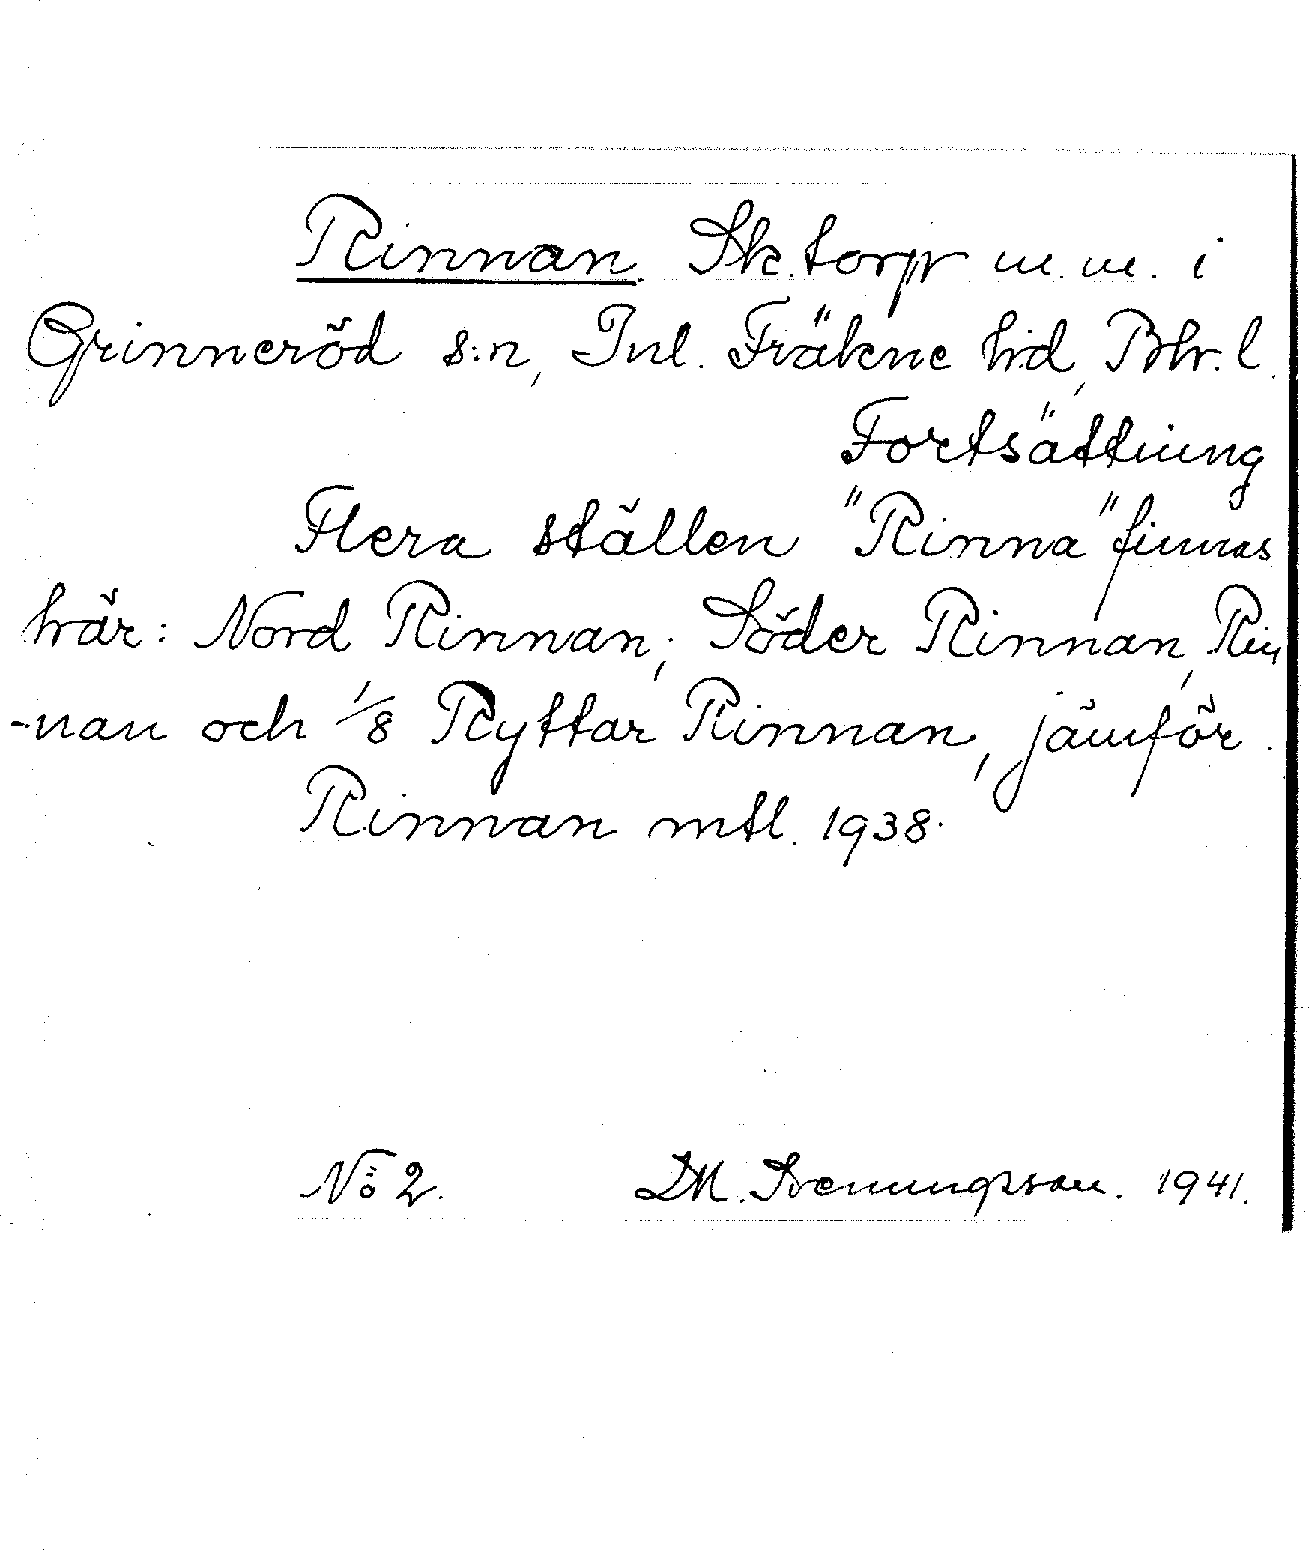 Rinnan. Sk. torp m.m. i
Grinneröd s:n, Inl. Fräkne hd, Bhr. l.
Fortsättning
Flera ställen "Rinna" finnas
här: Nord Rinnan; Söder Rinnan, Rin
-nan och 1/8 Ryttar Rinnan, jämför.
Rinnan mtl. 1938.
No 2. 1941.